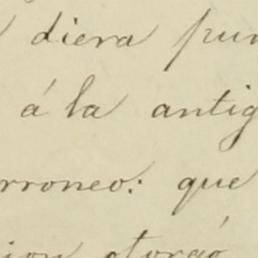 diera pun
á la antig
rroneo: que
ion otorgó